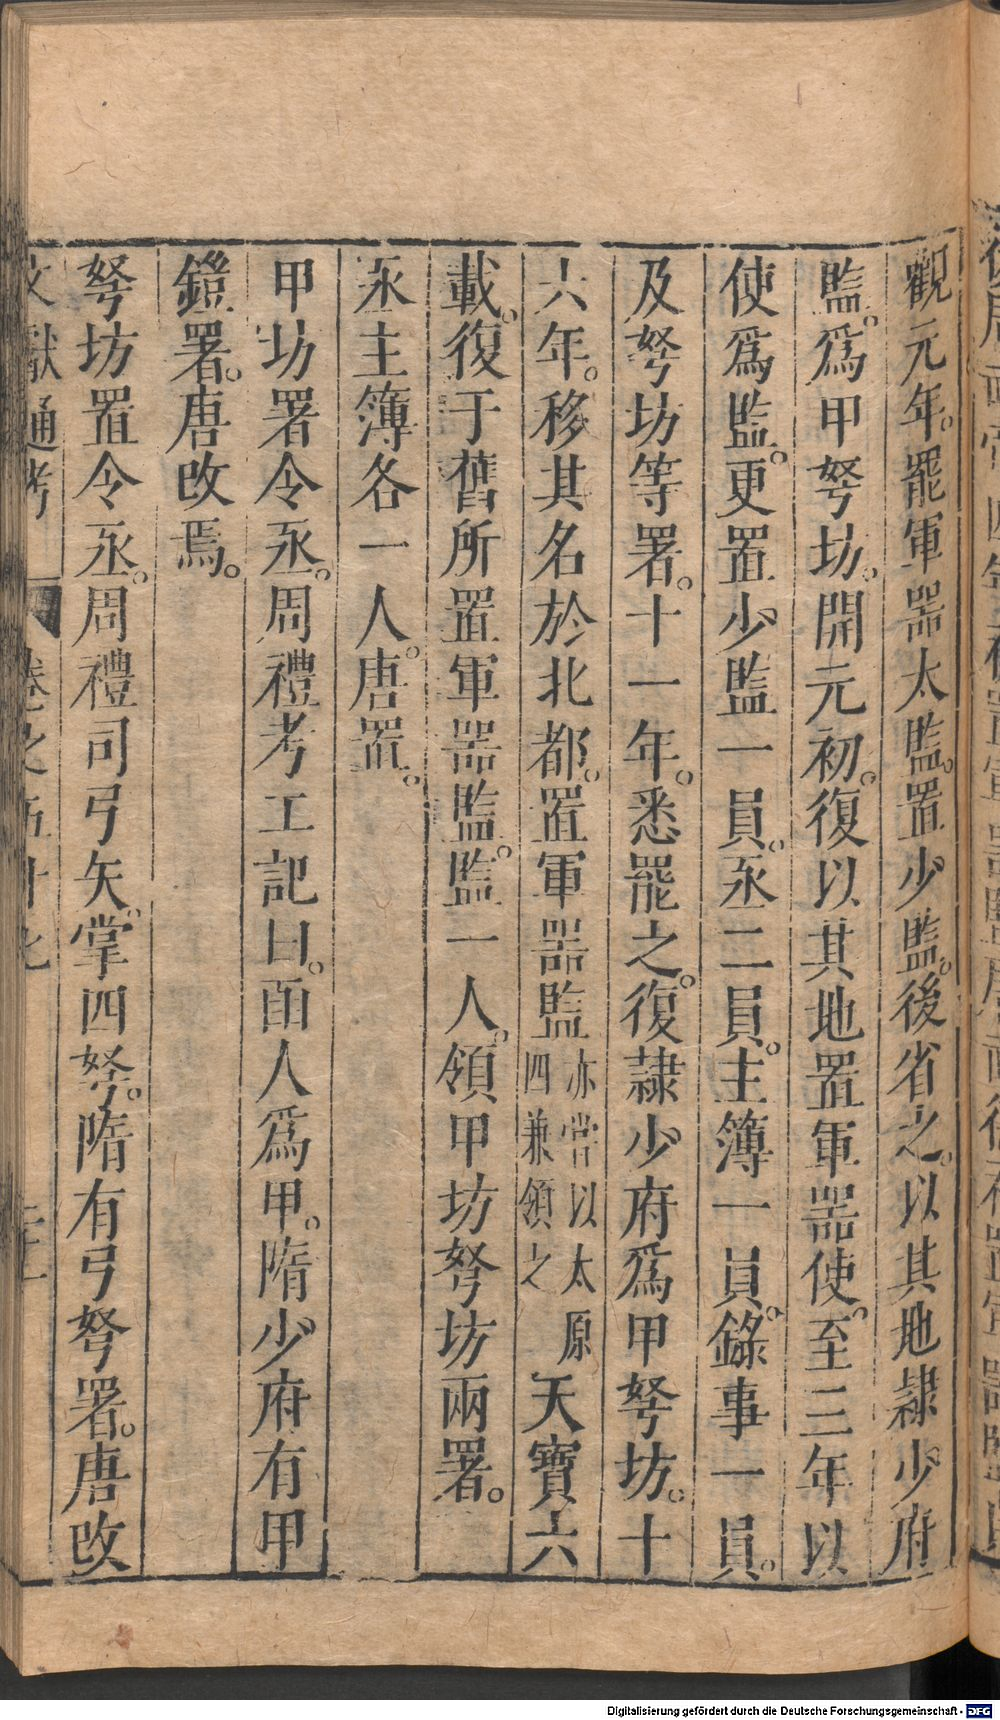 觀元年。罷軍器太監。置少監。後省之。以其地隷少府
監。爲甲弩坊。開元初。復以其地置軍器使。至三年以
使爲監。更置少監一員。丞二員。主簿一員。錄事一員。
及弩坊等署。十一年。悉罷之。復隷少府爲甲弩坊。十
六年。移其名於北都。置軍器監亦嘗以太原四兼領之天寶六
載。復于舊所置軍器監。監一人。領甲坊弩坊兩署。
丞主簿各一人。唐置。
甲坊署令丞。周禮考工記曰。函人爲甲。隋少府有甲
鎧署。唐改焉。
弩坊置令丞。周禮司弓矢。掌四弩。隋有弓弩署。唐改
文獻通考 卷之五十七
Digitalisierung gefördert durch die Deutsche Forschungsgemeinschaft - DFG